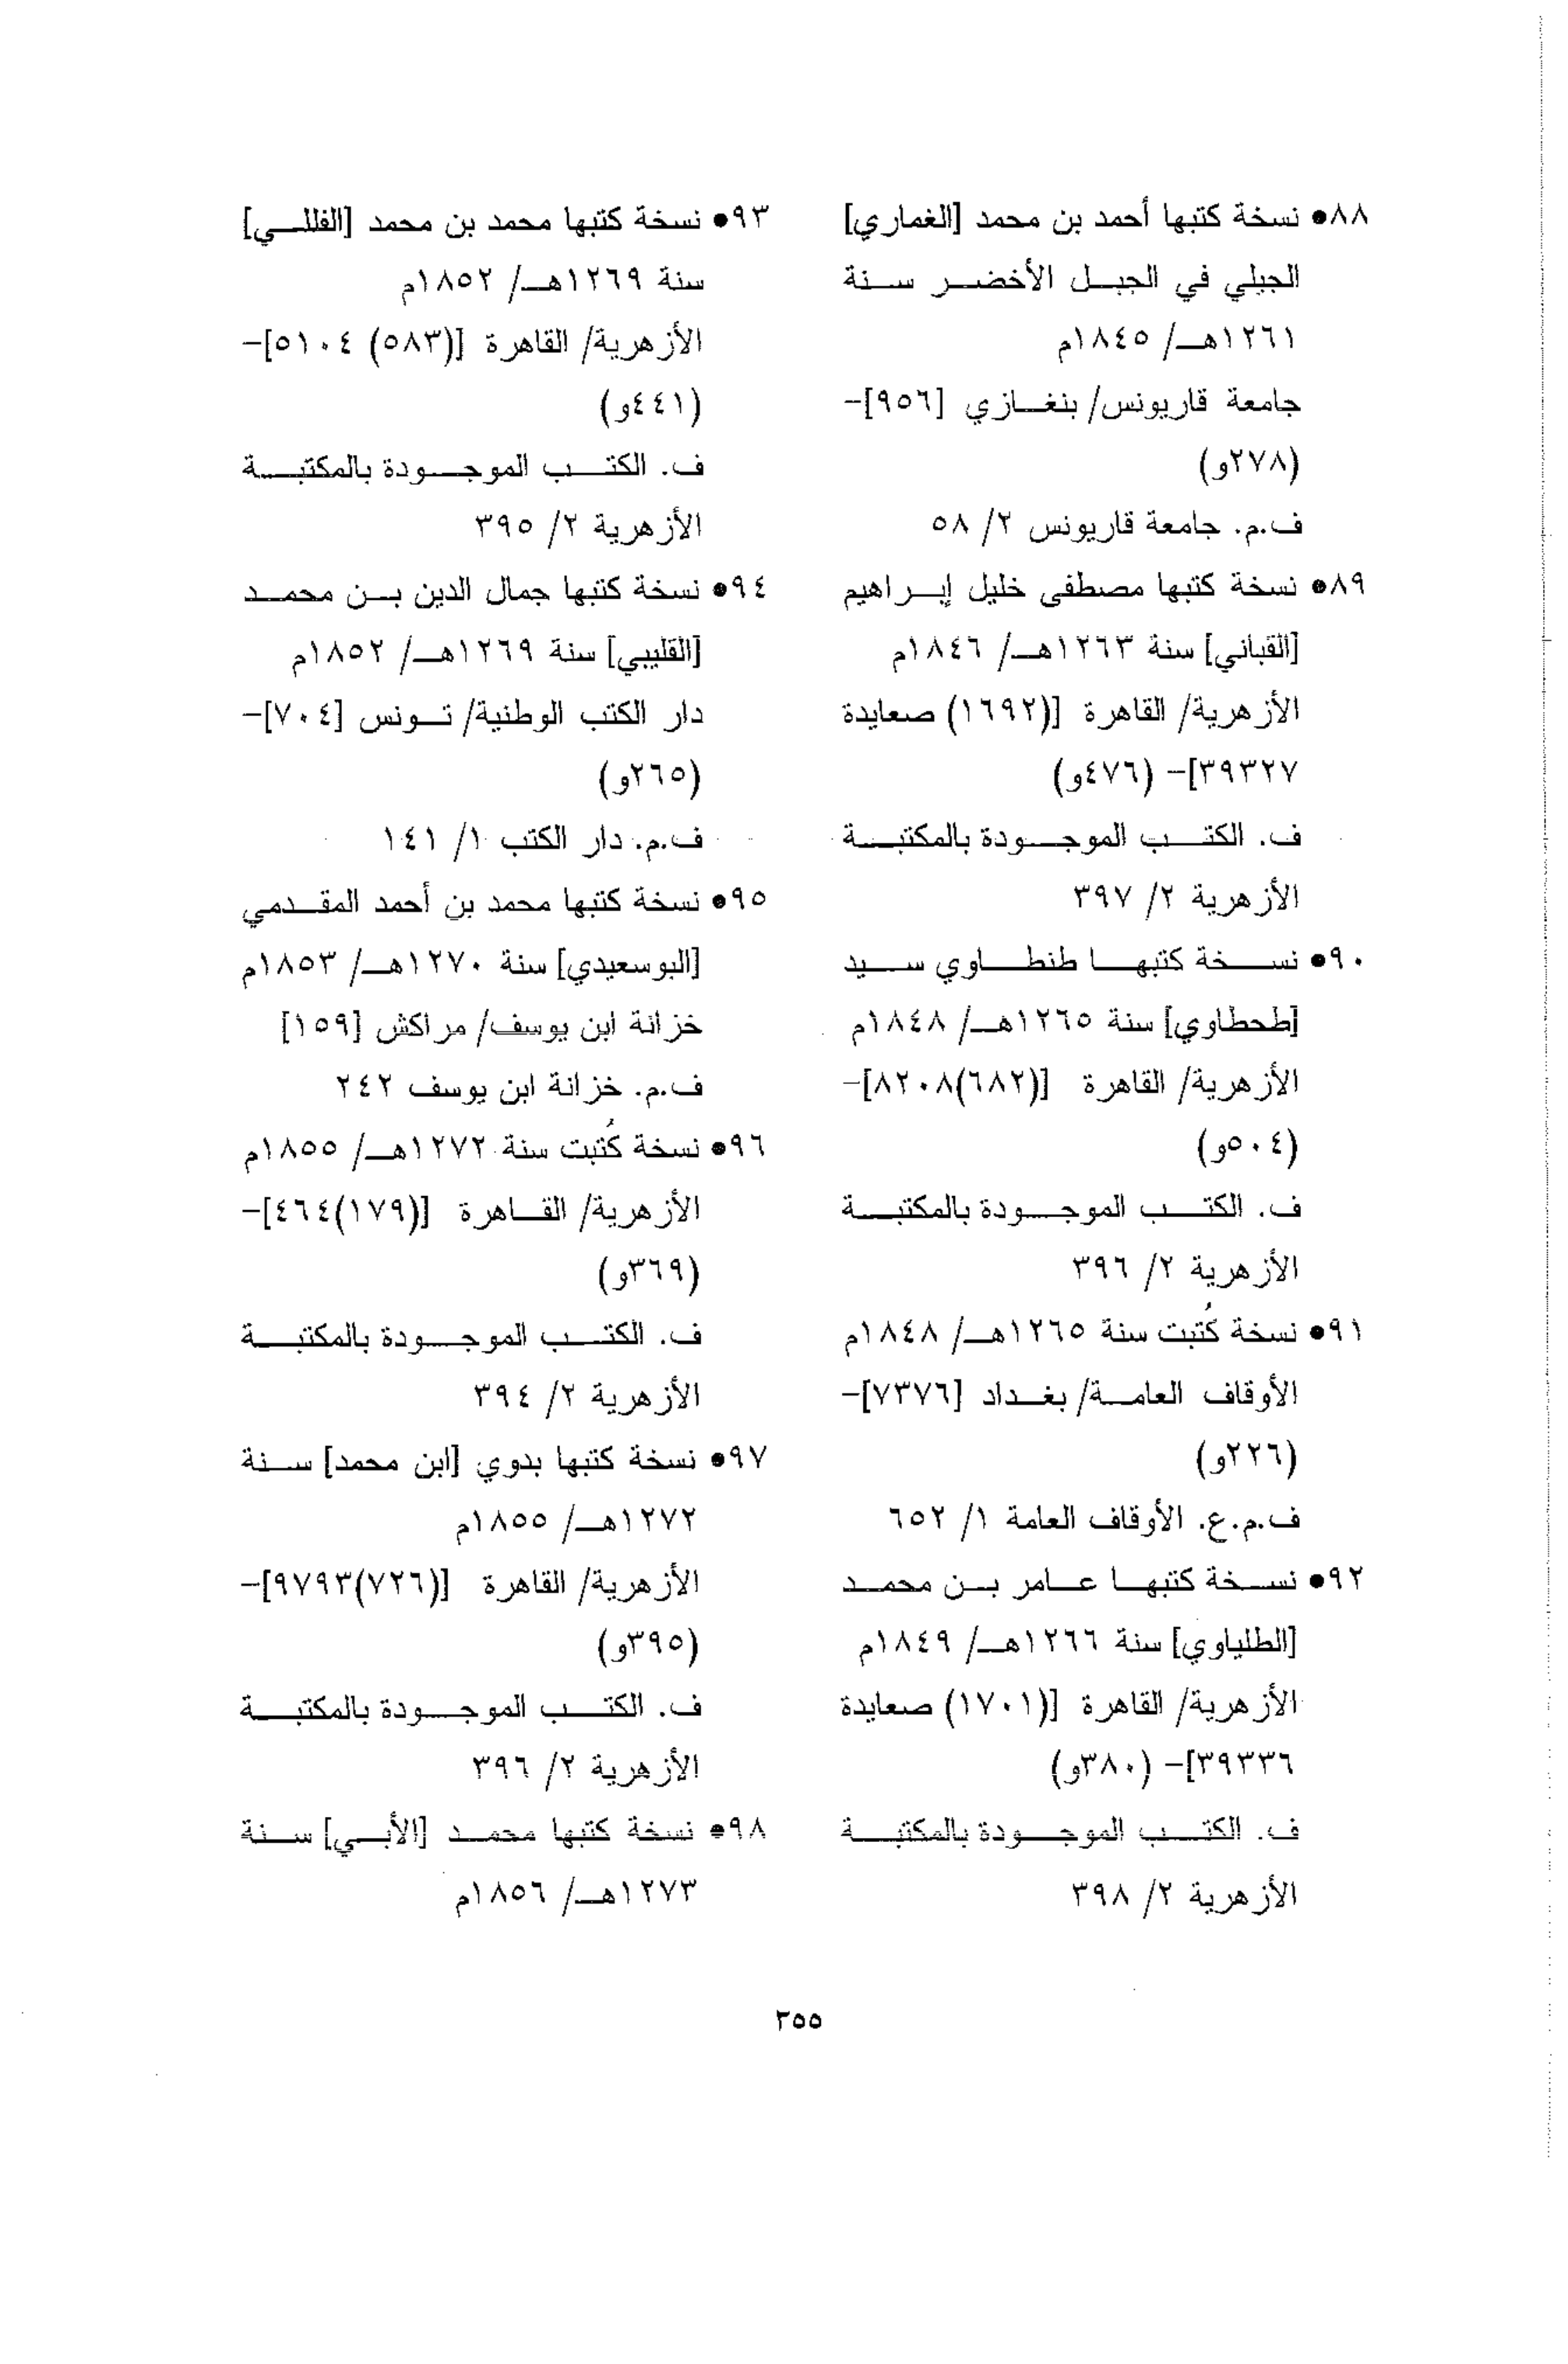 ٨٨● نسخة كتبها أحمد بن محمد [الغماري]
الجبلي في الجبل الأخضر سنة
١٢٦١هـ/ ١٨٤٥م
جامعة قاريونس/ بنغازي [٩٥٦]-
(٢٧٨و)
ف.م. جامعة قاريونس ٢/ ٥٨
٨٩● نسخة كتبها مصطفى خليل إبراهيم
[القباني] سنة ١٢٦٣هـ/ ١٨٤٦م
الأزهرية/ القاهرة [(١٦٩٢) صعايدة
٣٩٣٢٧]- (٤٧٦و)
ف. الكتب الموجودة بالمكتبة
الأزهرية ٢/ ٣٩٧
٩٠● نسخة كتبها طنطاوي سيد
[طحطاوي] سنة ١٢٦٥هـ/ ١٨٤٨م
الأزهرية/ القاهرة [(٦٨٢)٨٢٠٨]-
(٥٠٤و)
ف. الكتب الموجودة بالمكتبة
الأزهرية ٢/ ٣٩٦
٩١● نسخة كُتبت سنة ١٢٦٥هـ/ ١٨٤٨م
الأوقاف العامة/ بغداد [٧٣٧٦]-
(٢٢٦و)
ف.م.ع. الأوقاف العامة ١/ ٦٥٢
٩٢● نسخة كتبها عامر بن محمد
[الطلياوي] سنة ١٢٦٦هـ/ ١٨٤٩م
الأزهرية/ القاهرة [(١٧٠١) صعايدة
٣٩٣٣٦]- (٣٨٠و)
ف. الكتب الموجودة بالمكتبة
الأزهرية ٢/ ٣٩٨
٩٣● نسخة كتبها محمد بن محمد [الفللي]
سنة ١٢٦٩هـ/ ١٨٥٢م
الأزهرية/ القاهرة [(٥٨٣) ٥١٠٤]-
(٤٤١و)
ف. الكتب الموجودة بالمكتبة
الأزهرية ٢/ ٣٩٥
٩٤● نسخة كتبها جمال الدين بن محمد
[القليبي] سنة ١٢٦٩هـ/ ١٨٥٢م
دار الكتب الوطنية/ تونس [٧٠٤]-
(٢٦٥و)
ف.م. دار الكتب ١/ ١٤١
٩٥● نسخة كتبها محمد بن أحمد المقدمي
[البوسعيدي] سنة ١٢٧٠هـ/ ١٨٥٣م
خزانة ابن يوسف/ مراكش [١٥٩]
ف.م. خزانة ابن يوسف ٢٤٢
٩٦● نسخة كُتبت سنة ١٢٧٢هـ/ ١٨٥٥م
الأزهرية/ القاهرة [(١٧٩)٤٦٤]-
(٣٦٩و)
ف. الكتب الموجودة بالمكتبة
الأزهرية ٢/ ٣٩٤
٩٧● نسخة كتبها بدوي [ابن محمد] سنة
١٢٧٢هـ/ ١٨٥٥م
الأزهرية/ القاهرة [(٧٢٦)٩٧٩٣]-
(٣٩٥و)
ف. الكتب الموجودة بالمكتبة
الأزهرية ٢/ ٣٩٦
٩٨● نسخة كتبها محمد [الأبي] سنة
١٢٧٣هـ/ ١٨٥٦م
٢٥٥